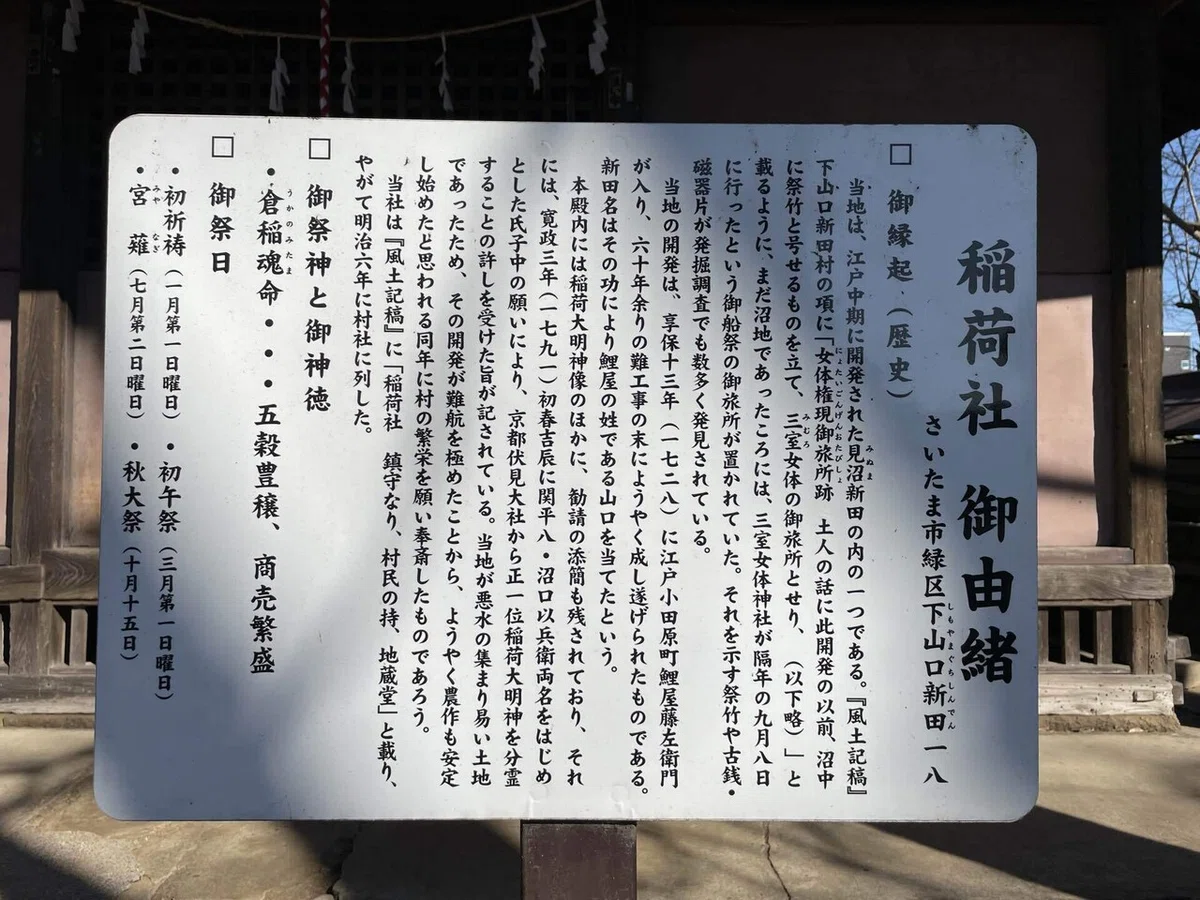 稲荷社　御由緒
さいたま市緑区下山口新田一八
□　御縁起（歴史）
当地は、江戸中期に開発された見沼新田の内の一つである。『風土記稿』
下山口新田村の項に「女体権現御旅所跡　土人の話に此開発の以前、沼中
に祭竹と号せるものを立て、三室女体の御旅所とせり、（以下略）」と
載るように、まだ沼地であったころには、三室女体神社が隔年の九月八日
に行ったという御船祭の御旅所が置かれていた。それを示す祭竹や古銭・
磁器片が発掘調査でも数多く発見されている。
当地の開発は、享保十三年（一七二八）に江戸小田原町鯉屋藤左衛門
が入り、六十年余りの難工事の末にようやく成し遂げられたものである。
新田名はその功により鯉屋の姓である山口を当てたという。
本殿内には稲荷大明神像のほかに、勧請の添簡も残されており、それ
には、寛政三年（一七九一）初春吉辰に関平八・沼口以兵衛両名をはじめ
とした氏子中の願いにより、京都伏見大社から正一位稲荷大明神を分霊
することの許しを受けた旨が記されている。当地が悪水の集まり易い土地
であったため、その開発が難航を極めたことから、ようやく農作も安定
し始めたと思われる同年に村の繁栄を願い奉斎したものであろう。
当社は『風土記稿』に「稲荷社　鎮守なり、村民の持、地蔵堂」と載り、
やがて明治六年に村社に列した。
□　御祭神と御神徳
・倉稲魂命・・・五穀豊穣、商売繁盛
□　御祭日
・初祈祷（一月第一日曜日）・初午祭（三月第一日曜日）
・宮　薙（七月第二日曜日）・秋大祭（十月十五日）